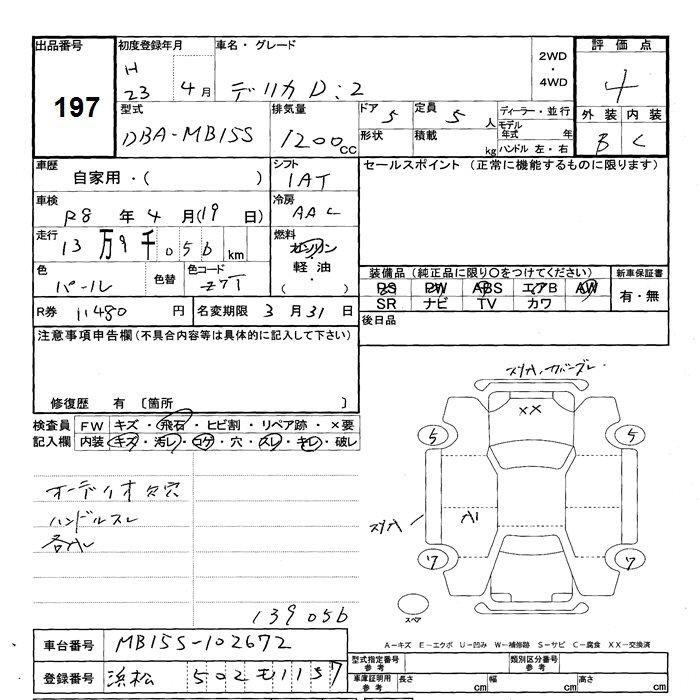 出品番号
197
初度登録年月
H
23 4月
車名・グレード
デリカD:2
2WD
・
4WD
評価点
4
外装 内装
B C
型式
DBA-MB15S
排気量
1200cc
ドア 5
形状
定員 5人
積載 kg
ディーラー・並行
モデル
年式 年
ハンドル 左・右
車歴
自家用・( )
シフト
IAT
セールスポイント (正常に機能するものに限ります)
車検
R8 年 4 月(19 日)
冷房
AAC
走行
13万9千056km
燃料
ガソリン
軽油
( ・ )
色
パール
色替
色コード
Z7T
装備品(純正品に限り〇をつけてください)
PS PW ABS エアB AW
SR ナビ TV カワ
新車保証書
有・無
R券 11480 円
名変期限 3 月 31 日
後日品
注意事項申告欄(不具合内容等は具体的に記入して下さい)
修復歴 有 〔箇所 〕
検査員
記入欄
FW キズ・飛石・ヒビ割・リペア跡・×要
内装 キズ・汚レ・コゲ・穴・スレ・キレ・破レ
オーディオ欠穴
ハンドルスレ
139056
XX
5 5
7 7
スペア
A-キズ E-エクボ U-凹み W-補修跡 S-サビ C-腐食 XX-交換済
車台番号 MB15S-102672
登録番号 浜松 502 も1157
型式指定番号
参考
類別区分番号
参考
車庫証明用
参考
長さ cm
幅 cm
高さ cm